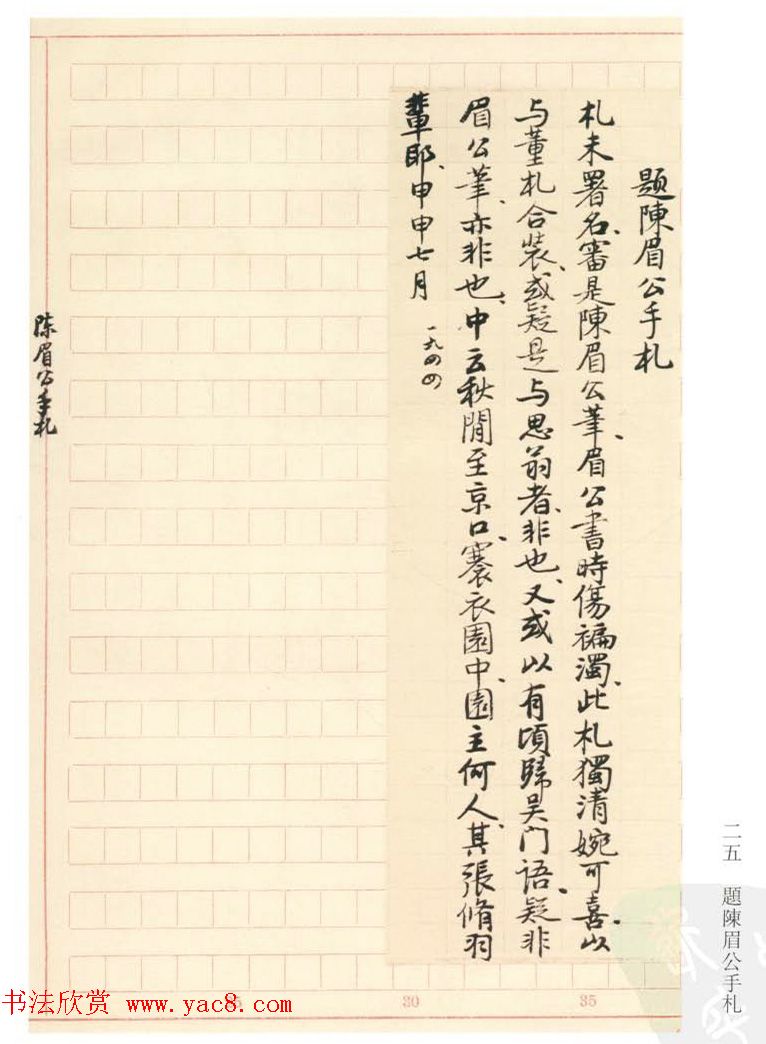 題陳眉公手札
札未署名、審是陳眉公筆、眉公書時傷褊濁、此札獨清婉可喜、以
与董札合裝、或疑是与思翁者、非也、又或以有頃歸吴门语、疑非
眉公筆、亦非也、中云秋間至京口、褰衣園中、園主何人、其張脩羽
輩耶、甲申七月
一九四四
陈眉公手札
二五 題陳眉公手札
书法欣赏 www.yac8.com
30
35